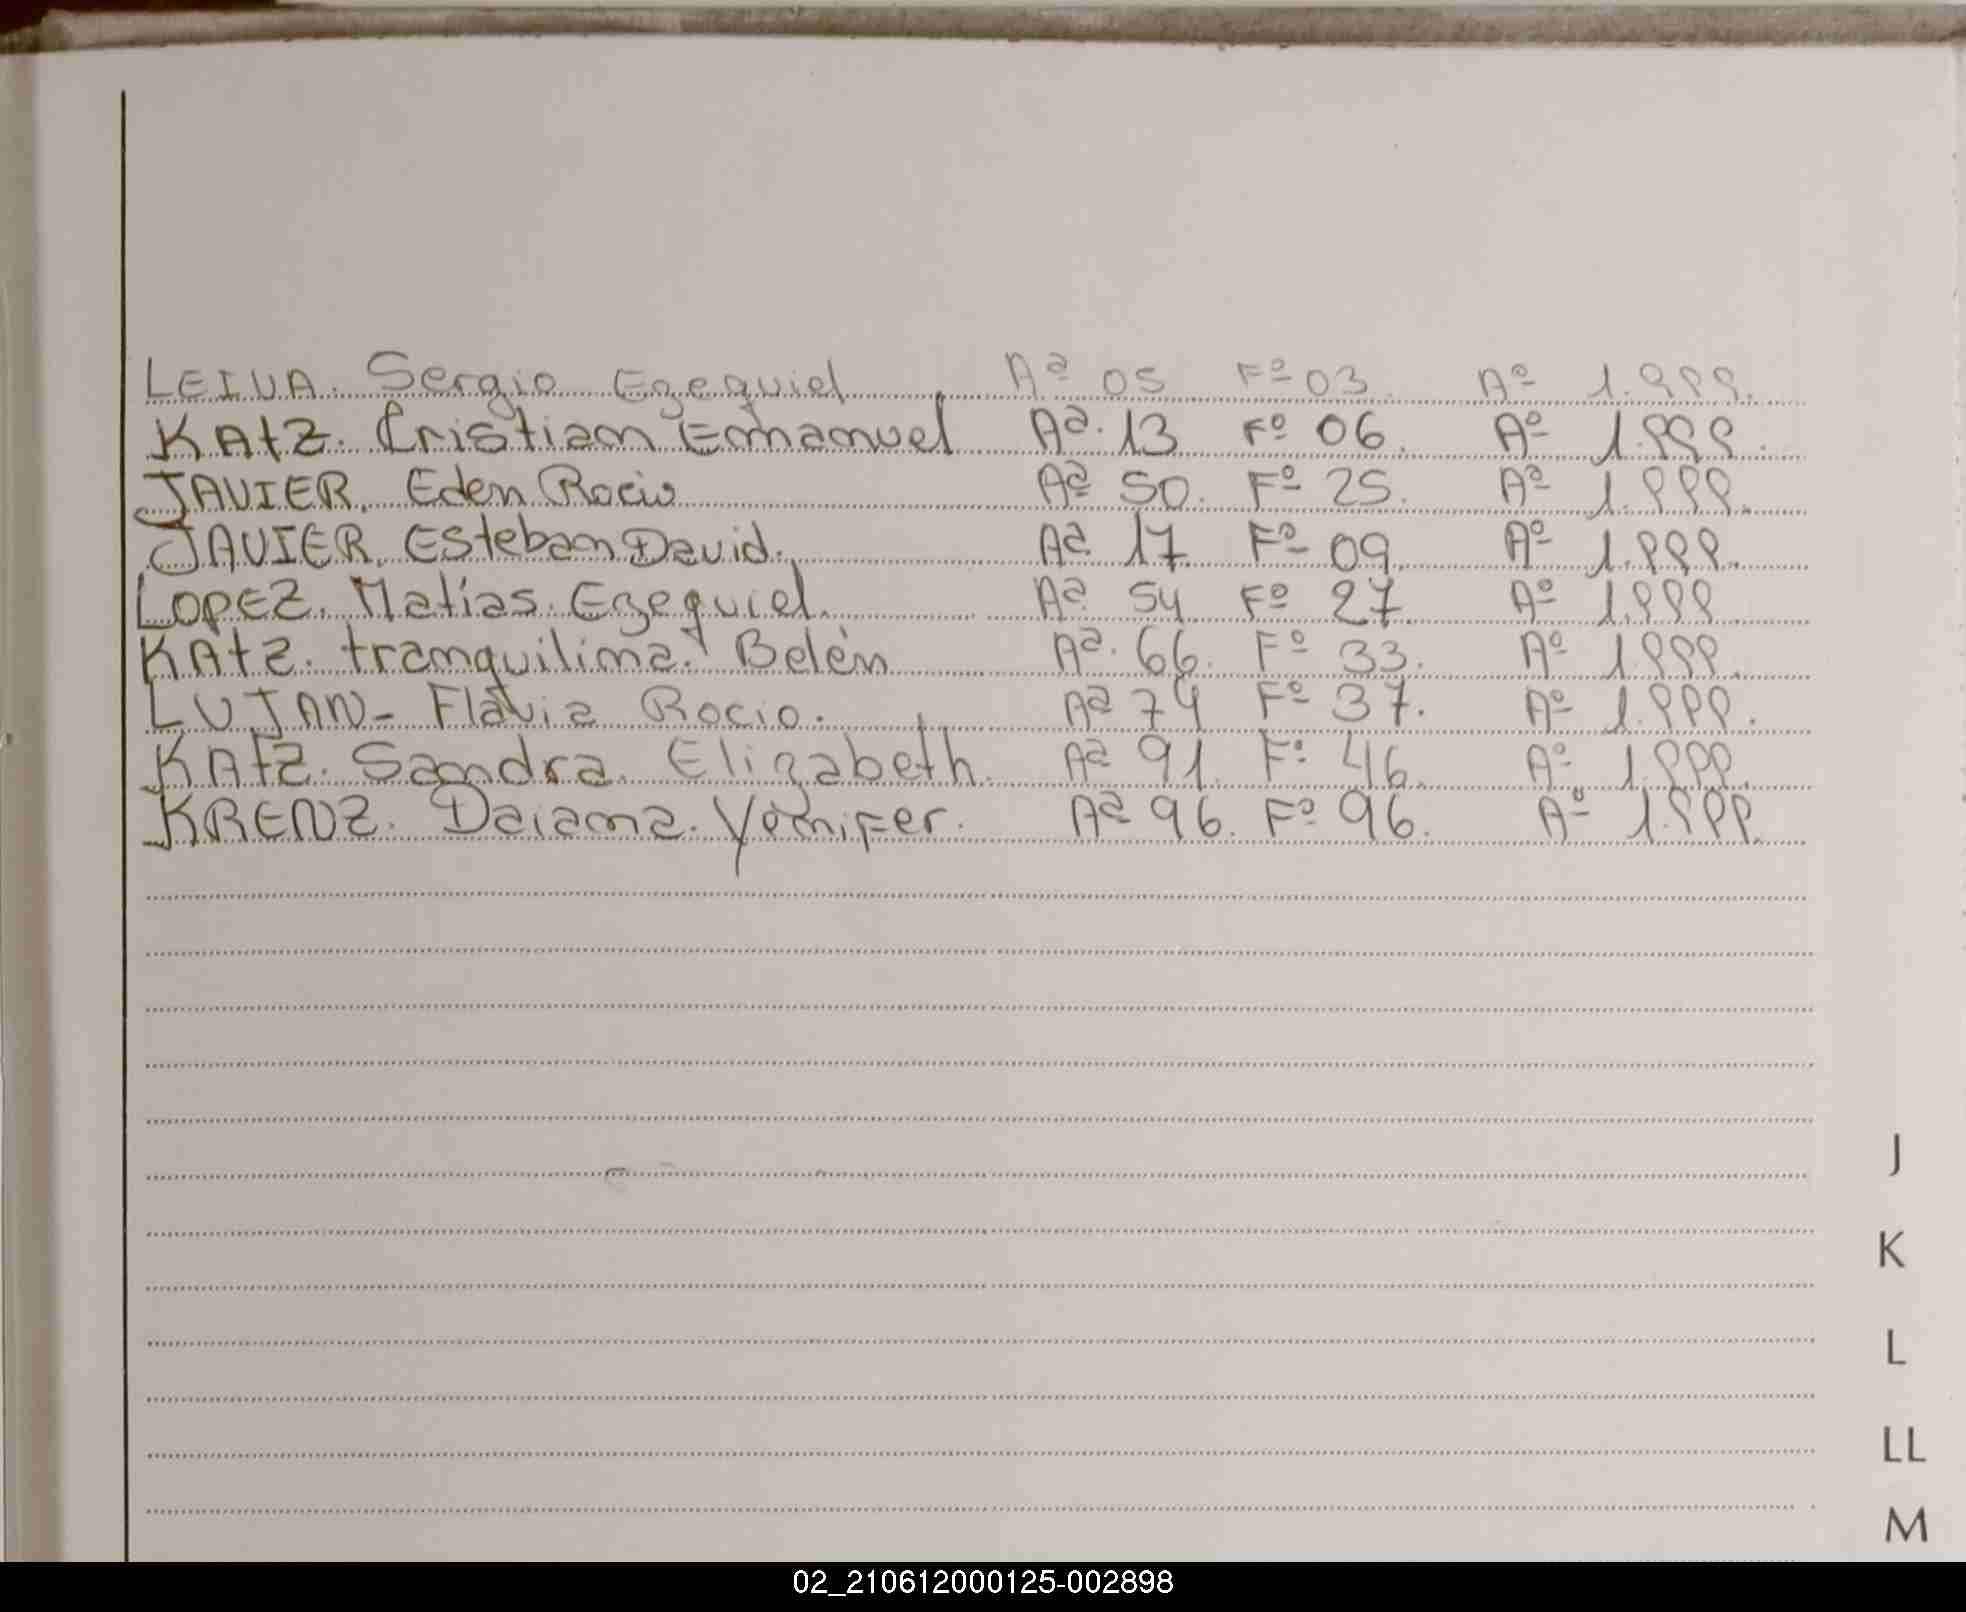 LEIVA. Sergio Ezequiel Aª 05 Fº 03. Aº 1.999.
KAtZ. Cristian Emanuel Aª. 13 Fº 06. Aº 1.999.
JAVIER. Eden Rocio Aª 50. Fº 25. Aº 1.999.
JAVIER. Esteban David. Aª 17 Fº 09. Aº 1.999.
LOPEZ. Matías. Ezequiel. Aª 54 Fº 27. Aº 1.999.
KAtZ. tranquilina. Belén Aª. 66. Fº 33. Aº 1.999.
LUJAN- Flavia Rocio. Aª 74 Fº 37. Aº 1.999.
KAtZ. Sandra. Elizabeth. Aª 91. Fº 46. Aº 1.999.
KRENZ. Daiana. Yenifer. Aª 96. Fº 96. Aº 1.999.
J
K
L
LL
M
02_210612000125-002898